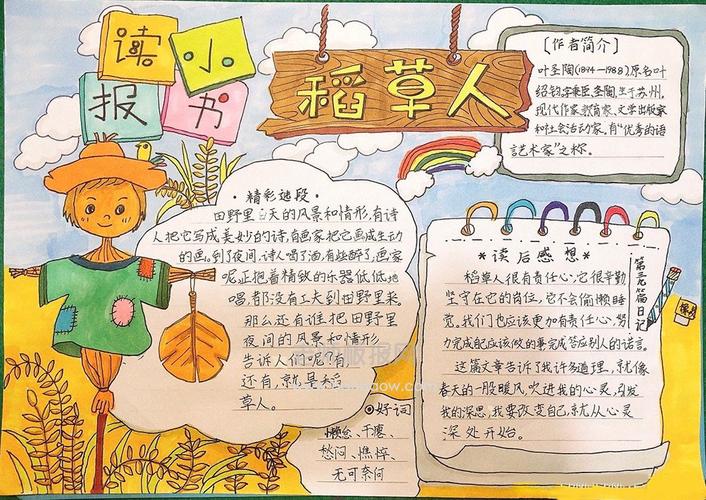 读书小报
稻草人
【作者简介】
叶圣陶(1894—1988)原名叶
绍钧,字秉臣、圣陶,生于苏州,
现代作家、教育家、文学出版家
和社会活动家,有“优秀的语
言艺术家”之称。
·精彩选段·
田野里白天的风景和情形,有诗
人把它写成美妙的诗,有画家把它画成生动
的画。到了夜间,诗人喝了酒,有些醉了,画家
呢,正抱着精致的乐器低低地
唱,都没有工夫到田野里来.
那么还有谁把田野里
夜间的风景和情形,
告诉人们呢?有,
还有,就是稻
草人。
◎好词
懒怠、干枣、
愁闷、憔悴、
无可奈何
*读后感想*
稻草人很有责任心,它很辛勤
坚守在它的岗位,它不会偷懒睡
觉。我们也应该更加有责任心,努
力完成自己应该做的事,完成答应别人的诺言。
这篇文章告诉了我许多道理,就像
春天的一股暖风,吹进我的心灵,引发
我的深思,我要改变自己,就从心灵
深处开始。
日记